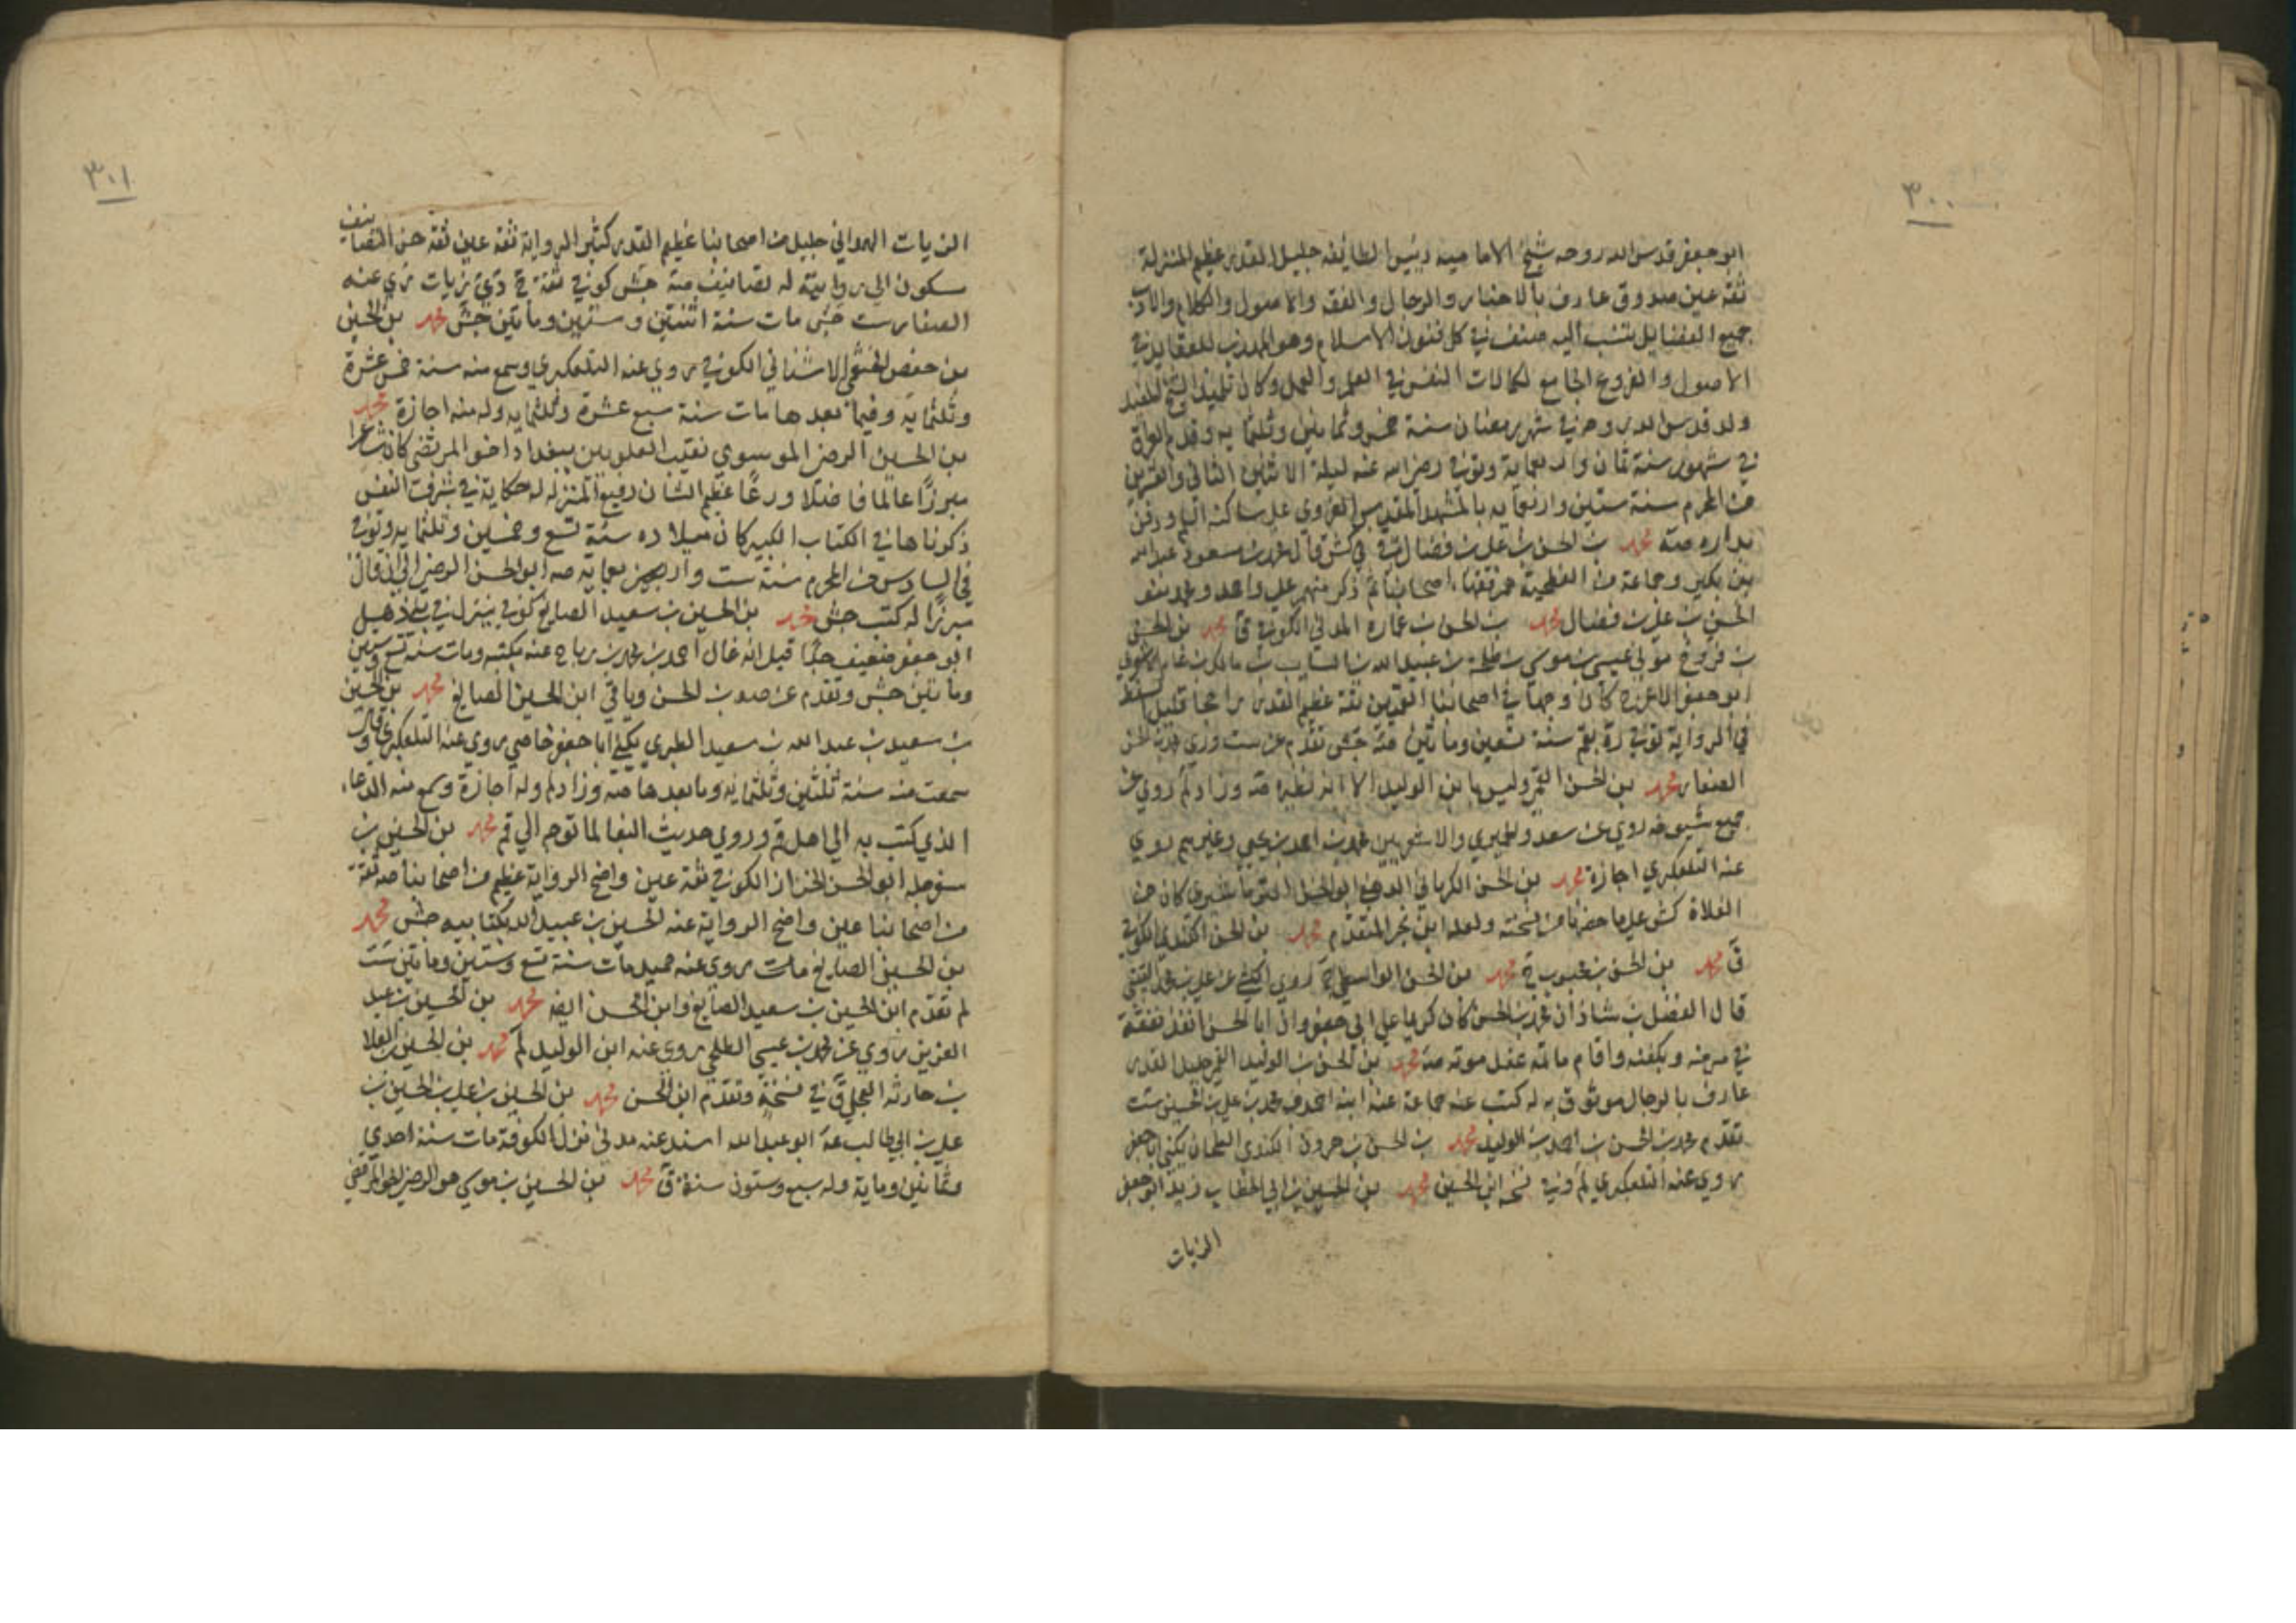 ٣٠٠
ابو جعفر قدس الله روحه شيخ الامامية ورئيس الطايفة جليل القدر عظيم المنزلة
ثقة عين صدوق عارف بالاخبار والرجال والفقه والاصول والكلام والادب
جميع الفضايل تنسب اليه صنف في كل فنون الاسلام وهو المهذب للعقايد في
الاصول والفروع الجامع لكمالات النفس في العلم والعمل وكان تلميذ الشيخ المفيد
ولد قدس الله روحه في شهر رمضان سنة خمس وثمانين وثلثمايه وقدم العراق
في شهور سنة ثمان واربعماية وتوفي رضي الله عنه ليلة الاثنين الثاني والعشرين
من المحرم سنة ستين واربعمايه بالمشهد المقدس الغروي على ساكنه السلم ودفن
بداره صه محمد بن الحسن بن علي بن فضال في كش قال محمد بن مسعود عبد الله
بن بكير وجماعة من الفطحية هم فقهاء اصحابنا ثم ذكر منهم علي واحمد ومحمد بنو
الحسن بن علي بن فضال محمد بن الحسن بن عمارة المدني الكوفي ق محمد بن الحسن
بن فروخ مولى عيسى بن موسى بن طلحة بن عبيد الله بن السايب بن مالك بن عامر الاشعري
ابو جعفر الاعرج كان وجها في اصحابنا القميين ثقة عظيم القدر راجحا قليل السقط
في الرواية توفي ره بقم سنة تسعين ومأتين صه جش تقدم عن ست وري محمد بن الحسن
الصفار محمد بن الحسن القمي وليس بابن الوليد الا انه نظيره صه وزاد لم روي عن
جميع شيوخه روي عن سعد والحميري والاشعريين محمد بن احمد بن يحيى وغيرهم روي
عنه التلعكبري اجازة محمد بن الحسن الكرماني الدهني ابو الحسن النرماشيري كان من
الغلاة كش على ما حضرنا من نسخته ولعله ابن بحر المتقدم محمد بن الحسن الكندي الكوفي
ق محمد بن الحسن بن محبوب ج محمد بن الحسن الواسطي ج روي الكشي عن علي بن محمد القتيبي
قال الفضل بن شاذان محمد بن الحسن كان كريما على ابي جعفر وان ابا الحسن انفذ نفقته
في مرضه وبكفنه واقام ماتمه عند موته صه محمد بن الحسن بن الوليد القمي جليل القدر
عارف بالرجال موثوق به له كتب عنه جماعة عنه ابنه احمد ومحمد بن علي بن الحسين ست
تقدم محمد بن الحسن بن احمد بن الوليد محمد بن الحسن بن هرون الكندي الطحان يكنى ابا جعفر
روي عنه التلعكبري لم وفي نسخه ابن الحسين محمد بن الحسين بن ابي الخطاب زيد ابو جعفر
الزيات
٣٠١
الزيات الهمداني جليل من اصحابنا عظيم القدر كثير الرواية ثقة عين ثقة حسن التصانيف
سكون الى روايته له تصانيف صه جش كوفي ثقة ج دي زيات ري عنه
الصفار ست جش مات سنة اثنتين وستين ومأتين جش محمد بن الحسين
بن حفص الخثعمي الاشناني الكوفي روي عنه التلعكبري وسمع منه سنة خمس عشرة
وثلثمايه وفيما بعدها مات سنة سبع عشرة وثلثمايه وله منه اجازة محمد
بن الحسين الرضي الموسوي نقيب العلويين ببغداد اخو المرتضى كان شاعرا
مبرزا عالما فاضلا ورعا عظيم الشان رفيع المنزله له حكاية في شرف النفس
ذكرناها في الكتاب الكبير كان ميلاده سنة تسع وخمسين وثلثمايه وتوفي
في السادس من المحرم سنة ست واربعمايه صه ابو الحسن الرضي الى ان قال
مبرزا له كتب جش محمد بن الحسين بن سعيد الصايغ كوفي ينزل في بني ذهل
ابو جعفر ضعيف جدا قيل انه غال احمد بن محمد بن رباح عنه بكتبه ومات سنة تسع وستين
ومأتين جش وتقدم عن صه ابن الحسن وياتي ابن الحسين الصايغ محمد بن الحسين
بن سعيد بن عبد الله بن سعيد الطبري يكنى ابا جعفر خاصي روي عنه التلعكبري وقال
سمعت منه سنة ثلثين وثلثمايه وما بعدها صه وزاد لم وله اجازة وسمع منه الدعاء
الذي كتب به الى اهل قم وروي حديث البغا لما توجه الى قم محمد بن الحسين بن
سفرجله ابو الحسن الخزاز الكوفي ثقة عين واضح الرواية عظيم من اصحابنا صه ثقة
من اصحابنا عين واضح الرواية عنه الحسين بن عبيد الله بكتابيه جش محمد
بن الحسين الصايغ مات روي عنه حميد مات سنة تسع وستين ومأتين ست
لم تقدم ابن الحسين بن سعيد الصايغ وابن الحسن ايضه محمد بن الحسين بن عبد
العزيز روي عن محمد بن عيسى الطلحي روي عنه ابن الوليد لم محمد بن الحسين بن العلا
بن حارثه العجلي ق في نسخة وتقدم ابن الحسن محمد بن الحسين بن علي بن الحسين بن
علي بن ابي طالب عه ابو عبد الله اسند عنه مدني نزل الكوفة مات سنة احدي
وثمانين وماية وله سبع وستون سنة ق محمد بن الحسين بن موسي هو الرضي اخو المرتضى